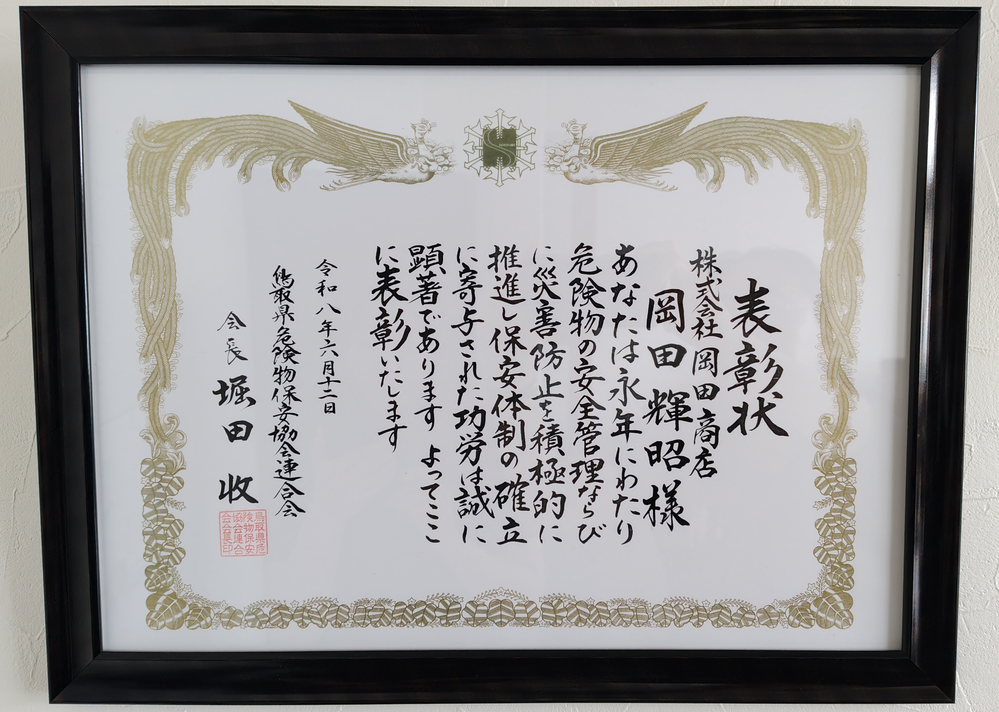 表彰状
株式会社 岡田商店
岡田輝昭様
あなたは永年にわたり
危険物の安全管理ならび
に災害防止を積極的に
推進し保安体制の確立
に寄与された功労は誠に
顕著であります よってここ
に表彰いたします
令和八年六月十二日
鳥取県危険物保安協会連合会
会長 堀田 收
鳥取県危
険物保安
協会連合
会会長印
S